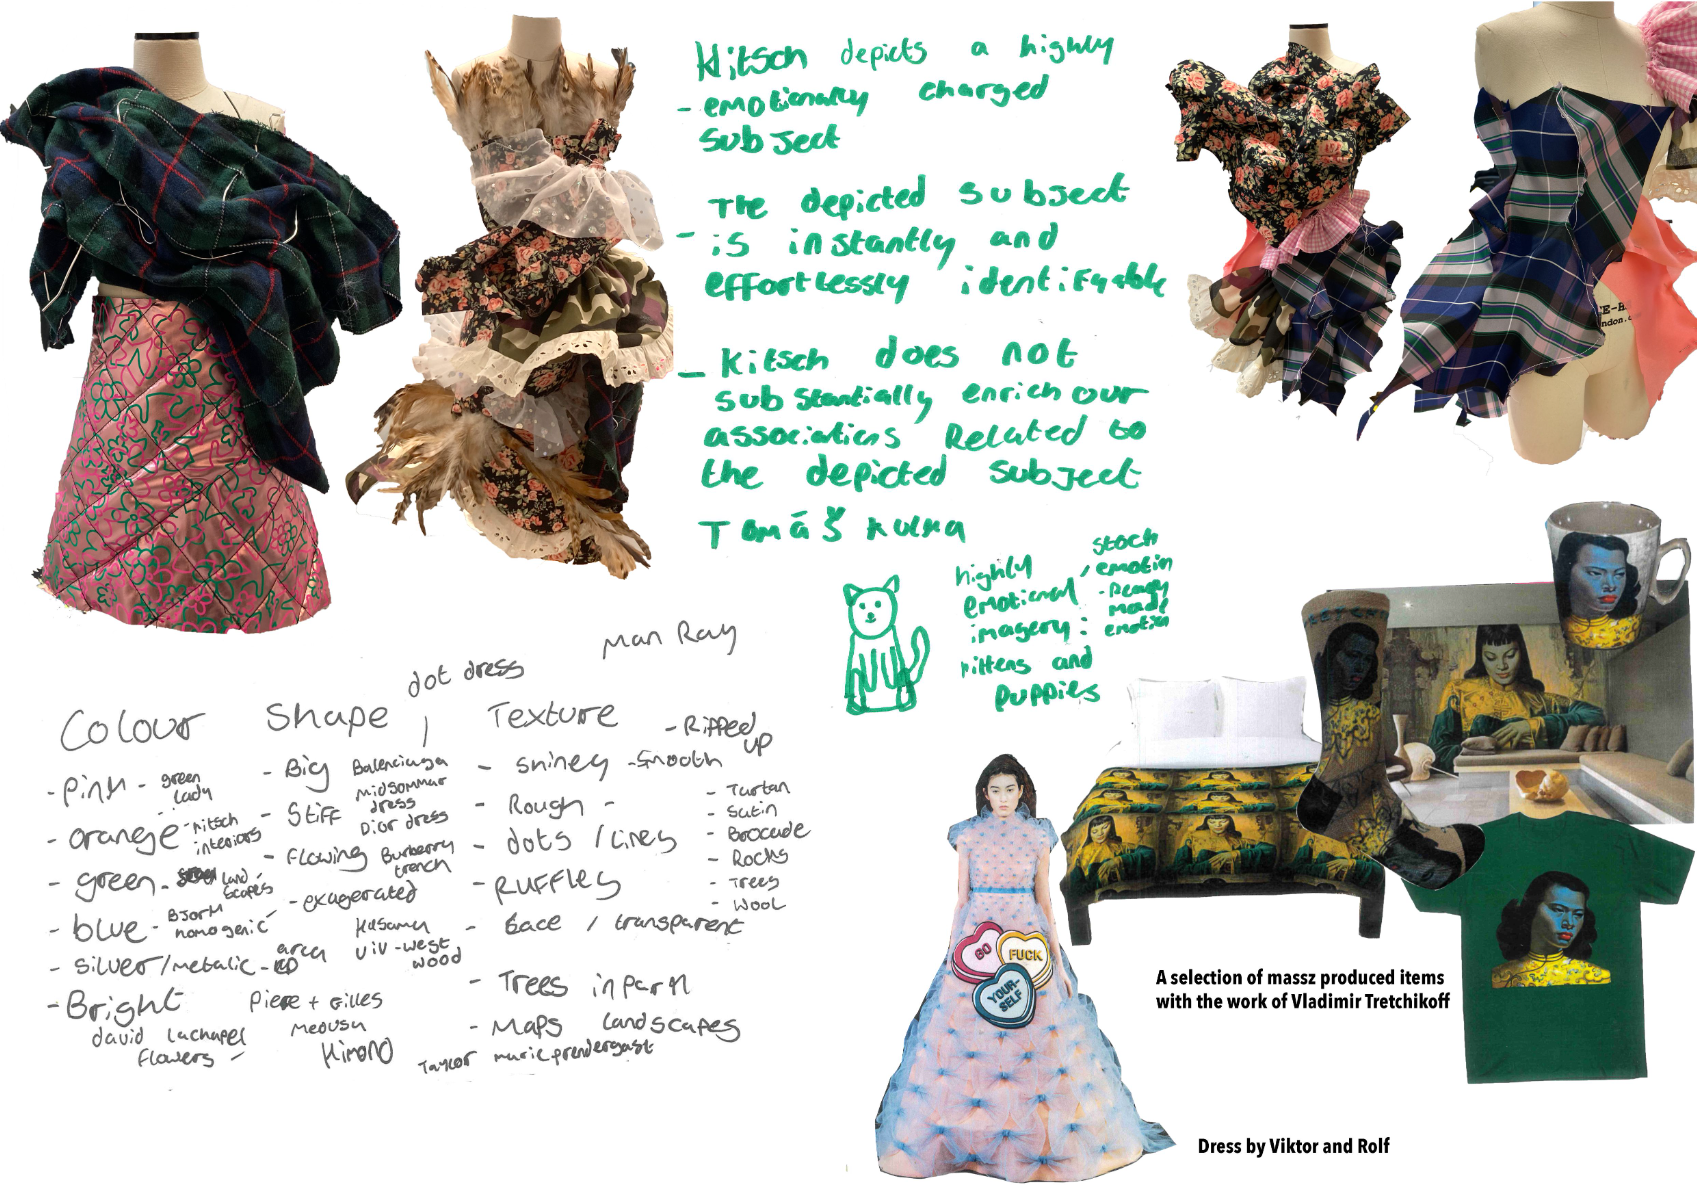 Kitsch depicts a highly
- emotionally charged
subject
The depicted subject
- is instantly and
effortlessly identifyable
- Kitsch does not
substantially enrich our
associations Related to
the depicted subject
Tomáš Kulka
highly
emotional
imagery:
kittens and
puppies
stock
emotion
- Ready
made
emotion
Man Ray
dot dress
Colour
- Pink - green
lady
- orange - kitsch
interiors
- green - land
scapes
- blue - Bjork
homogenic
- silver/metalic -
- Bright
david lachapel
flowers -
Shape
- Big Balenciaga
midsommar
dress
- Stiff Dior dress
- Flowing Burberry
trench
- exagerated
Kusama
viv-west
wood
Piere + Gilles
Medusa
Kimono
Texture
- Ripped
up
- shiney - smooth
- Rough -
- dots / lines
- Ruffles
- Lace / transparent
- Tartan
- Satin
- Brocade
- Rocks
- Trees
- Wool
- Trees in park
- Maps landscapes
marie prendergast
GO
FUCK
YOUR-
SELF
A selection of massz produced items
with the work of Vladimir Tretchikoff
Dress by Viktor and Rolf